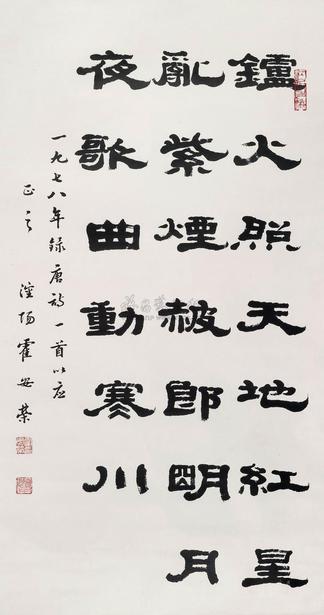 鑪火照天地紅星
亂紫煙赧郎明月
夜歌曲動寒川
一九七八年録唐詩一首以應
正之 滏陽霍安榮